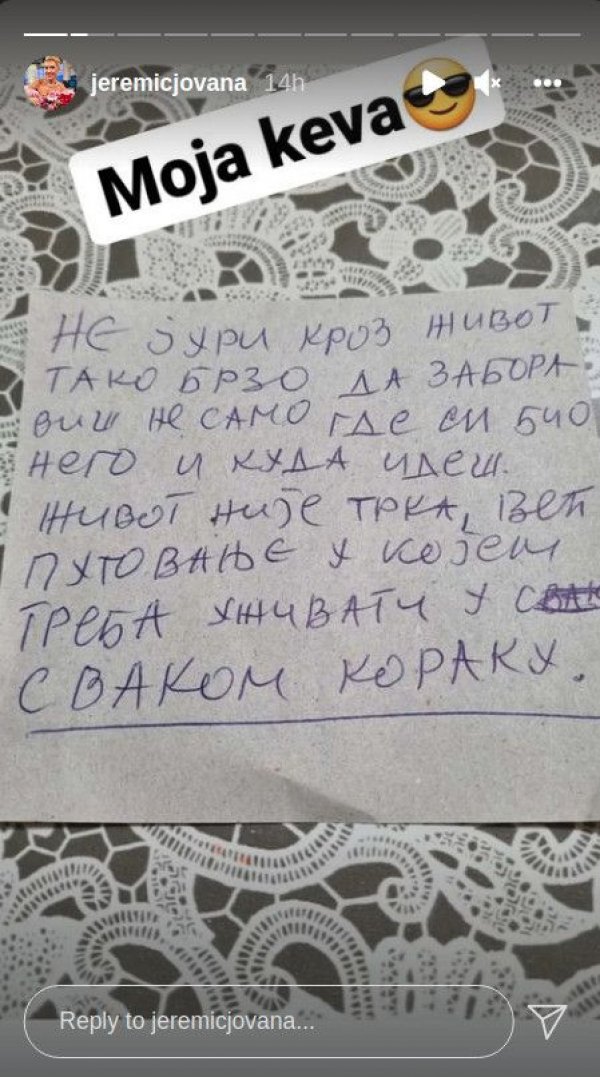 jeremicjovana 14h
Moja keva
НЕ ЈУРИ КРОЗ ЖИВОТ
ТАКО БРЗО ДА ЗАБОРА-
ВИШ НЕ САМО ГДЕ СИ БИО
НЕГО И КУДА ИДЕШ.
ЖИВОТ НИЈЕ ТРКА, ВЕЋ
ПУТОВАЊЕ У КОЈЕМ
ТРЕБА УЖИВАТИ У
СВАКОМ КОРАКУ.
Reply to jeremicjovana...